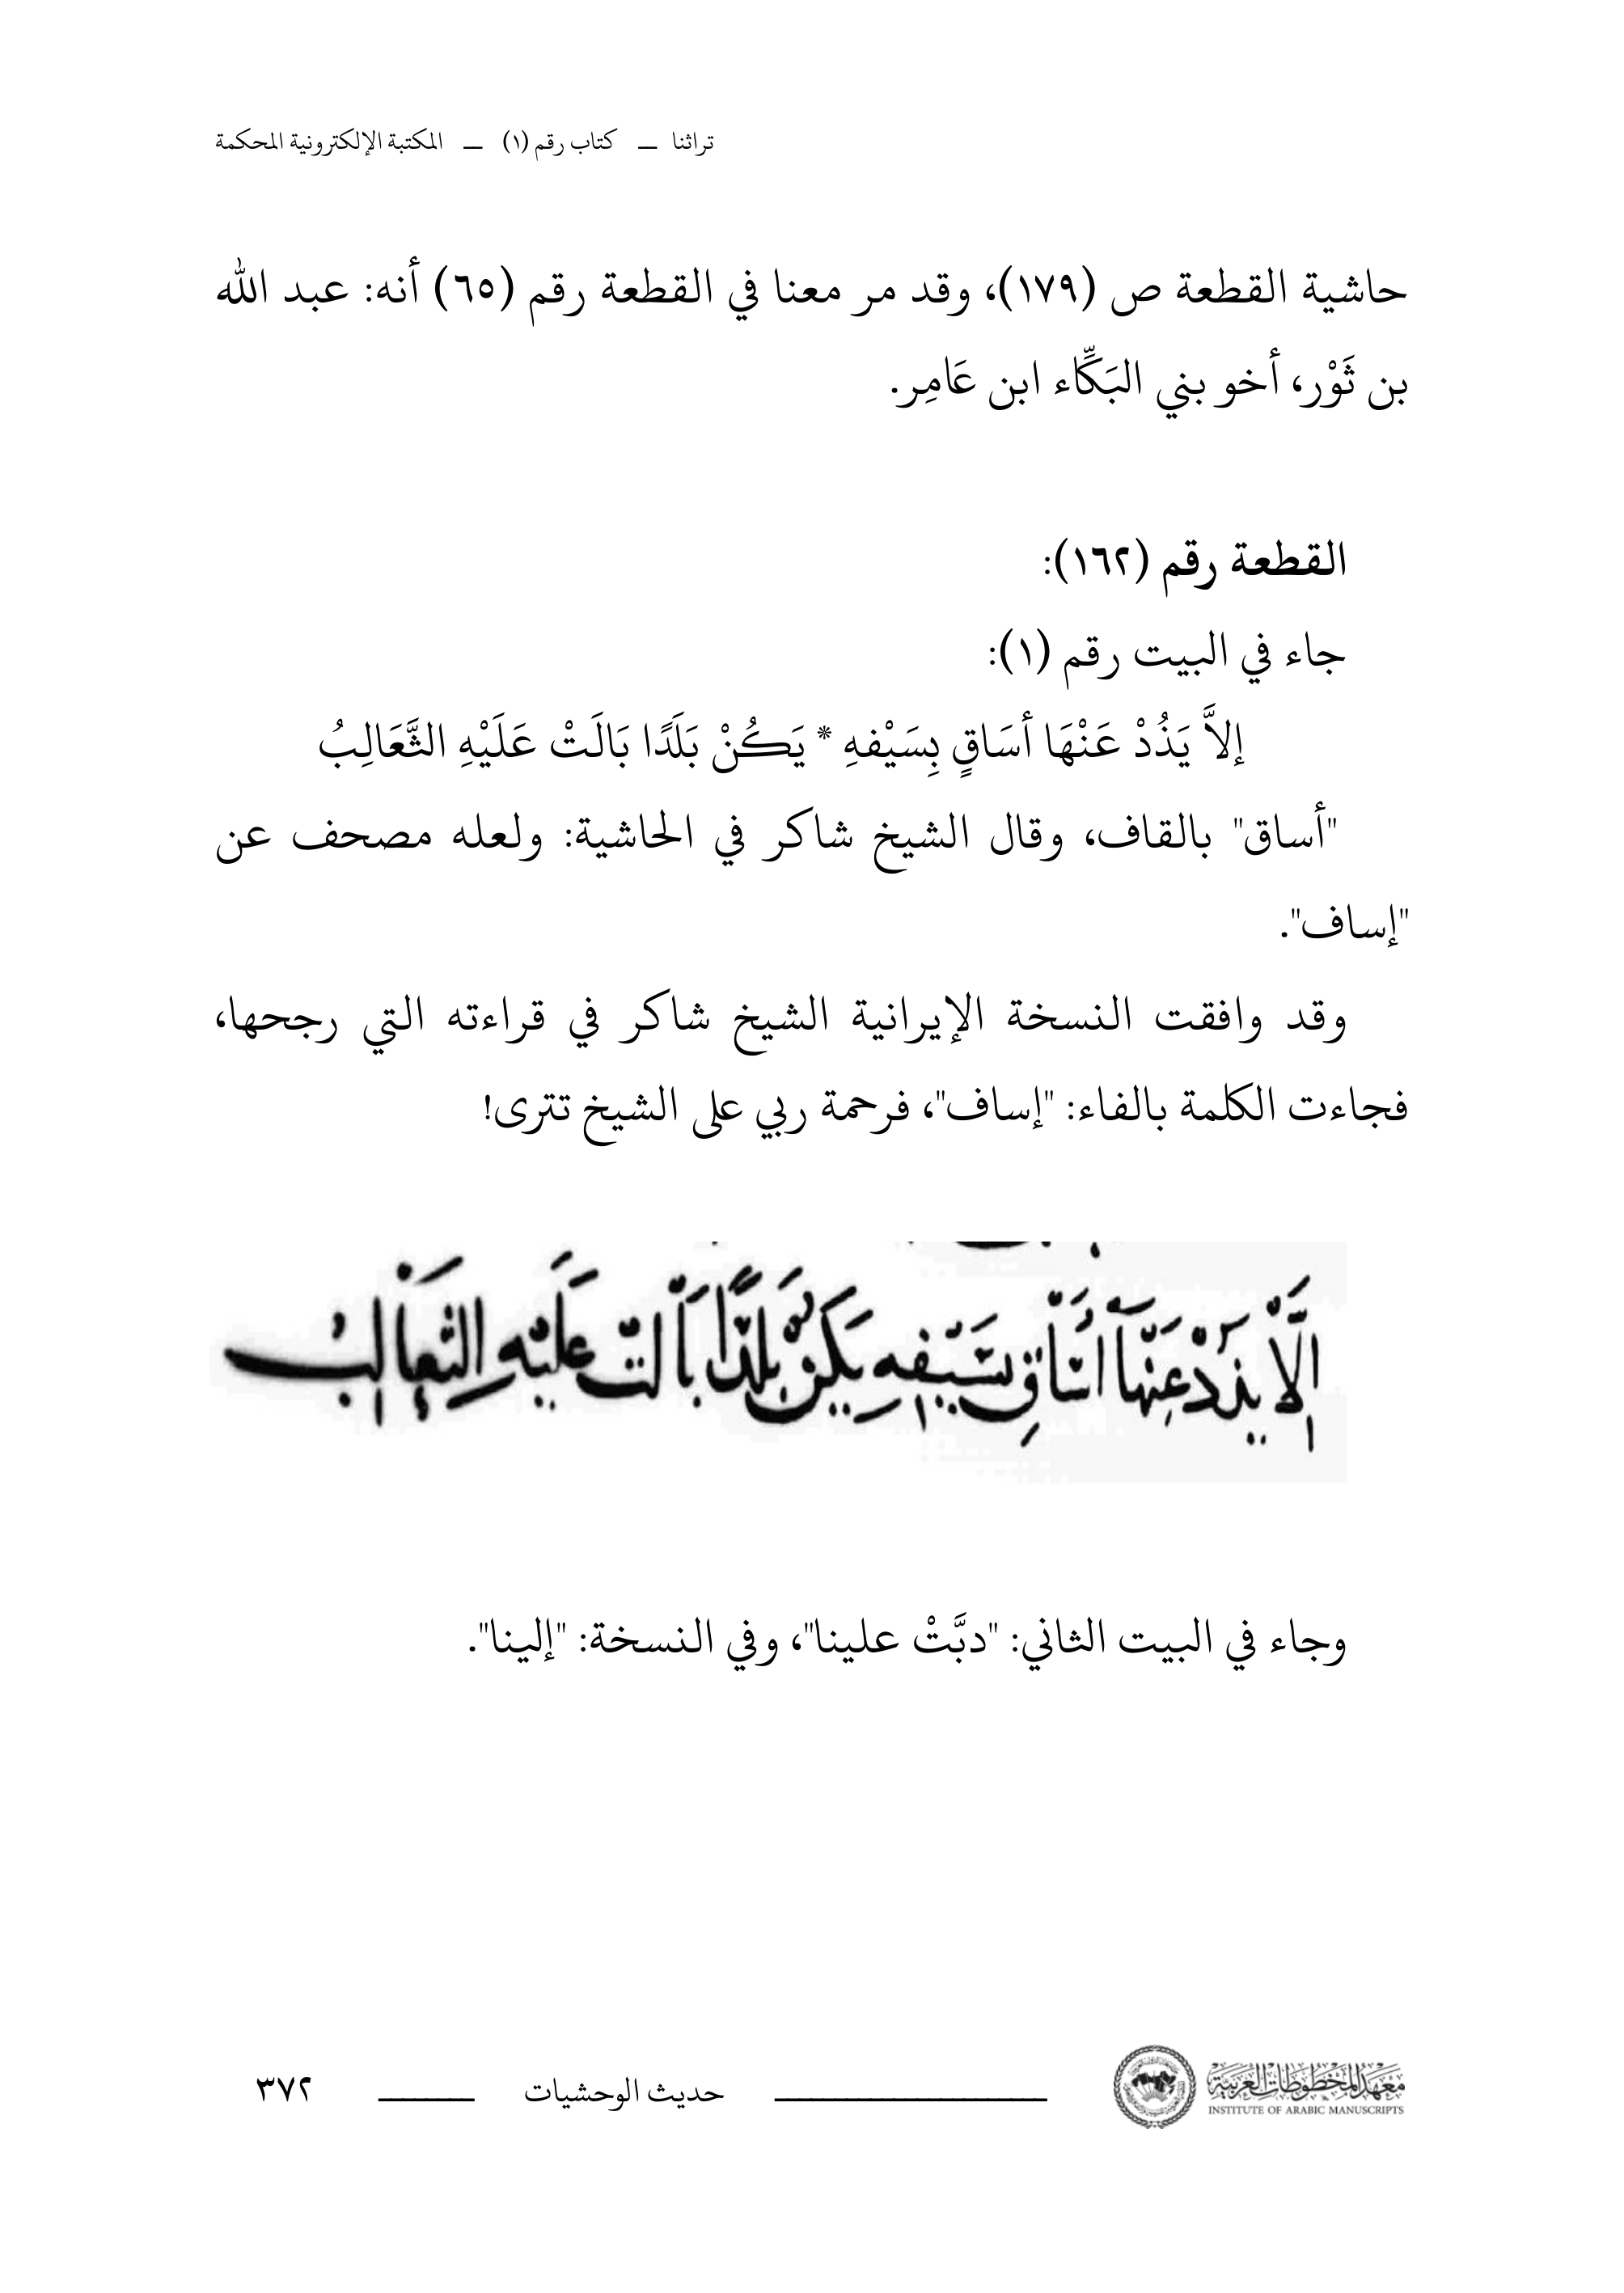 تراثنا ــ كتاب رقم (١) ــ المكتبة الإلكترونية المحكمة
حاشية القطعة ص (١٧٩)، وقد مر معنا في القطعة رقم (٦٥) أنه: عبد الله
بن ثَوْر، أخو بني البَكَّاء ابن عَامِر.
القطعة رقم (١٦٢):
جاء في البيت رقم (١):
إلاَّ يَذُدْ عَنْهَا أسَاقٍ بِسَيْفهِ * يَكُنْ بَلَدًا بَالَتْ عَلَيْهِ الثَّعَالِبُ
"أساق" بالقاف، وقال الشيخ شاكر في الحاشية: ولعله مصحف عن
"إساف".
وقد وافقت النسخة الإيرانية الشيخ شاكر في قراءته التي رجحها،
فجاءت الكلمة بالفاء: "إساف"، فرحمة ربي على الشيخ تترى!
إلَّا يذد عنها اساق بسيفه يكن بلدًا بالت عليه الثعالب
وجاء في البيت الثاني: "دبَّتْ علينا"، وفي النسخة: "إلينا".
معهد المخطوطات العربية
INSTITUTE OF ARABIC MANUSCRIPTS
حديث الوحشيات
٣٧٢